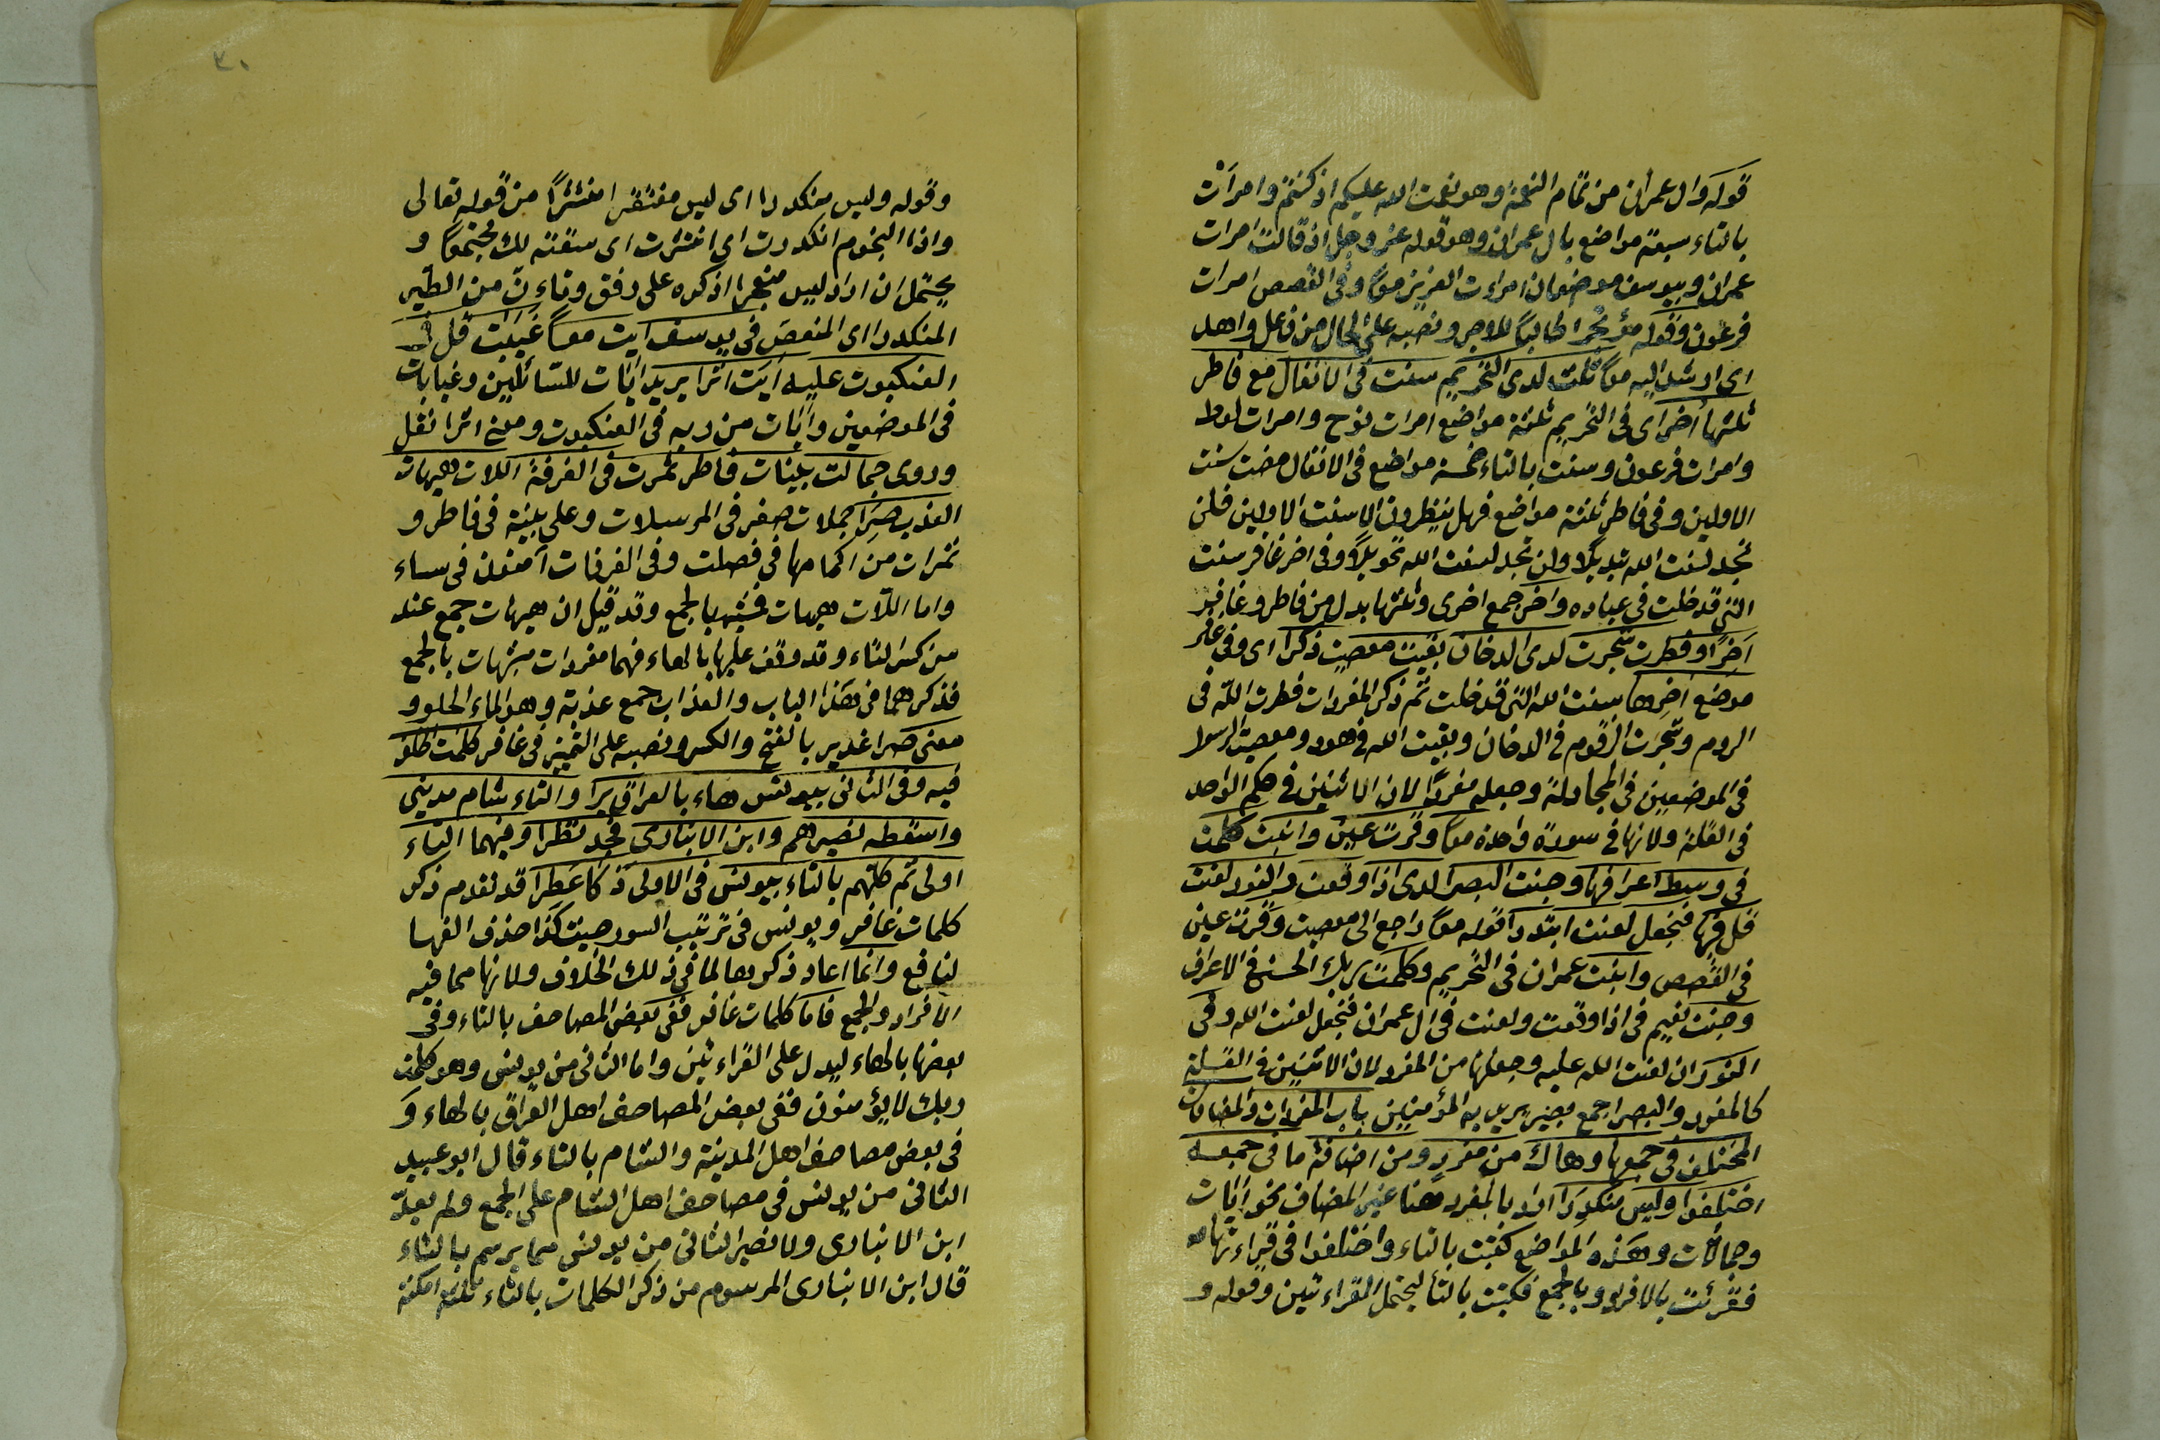 قوله وال عمران من تمام النعمة وهو نعمت الله عليكم اذ كنتم وامرات
بالتاء سبعة مواضع بال عمران وهو قوله عز وجل اذ قالت امرات
عمران وبيوسف موضعان امرات العزيز معًا وفي القصص امرات
فرعون وقوله مؤتجرا طالبًا للاجر ونصبه على الحال من فاعل واهد
اي ارشد اليه معًا ثلث لدى التحريم سنت في الانفال مع فاطر
ثلثها اخرى اي في التحريم ثلثة مواضع امرات نوح وامرات لوط
وامرات فرعون وسنت بالتاء خمسة مواضع في الانفال مضت سنت
الاولين وفي فاطر ثلثة مواضع فهل ينظرون الا سنت الاولين فلن
تجد لسنت الله تبديلًا ولن تجد لسنت الله تحويلًا وفي اخر غافر سنت
التي قد خلت في عباده واخر جمع اخرى وثلثها بدل من فاطر وغافر
اخرًا وفطرت شجرت لدى الدخان بقيت معصيت ذكرا اي وفي غافر
موضع اخرها سنت الله التي قد خلت ثم ذكر المفردات فطرت الله في
الروم وشجرت الزقوم في الدخان وبقيت الله في هود ومعصيت الرسول
في الموضعين في المجادلة وجعله مفردًا لان الاثنين في حكم الواحد
في القلة ولانها في سورة واحدة معًا وقرت عين وابنت كلمت
في وسط اعرافها وجنت البصرا لدى اذا وقعت والنور لعنت
قل فيها فنجعل لعنت ابتدرا قوله معًا راجع الى معصيت وقرت عين
في القصص وابنت عمران في التحريم وكلمت ربك الحسنى في الاعراف
وجنت نعيم في اذا وقعت ولعنت في ال عمران فنجعل لعنت الله وفي
النور ان لعنت الله عليه وجعلها من المفرد لان الاثنين في القلة
كالمفرد والبصرا جمع بصير يريد به المؤمنين باب المفردات والمضافات
المختلف في جمعها وهاك من مفرد ومن اضافة ما في جمعه
اختلفوا وليس منكدرا اراد بالمفرد هنا غير المضاف نحو ايات
وجمالات وهذه المواضع كتبت بالتاء واختلفوا في قراءتها
فقرئت بالافراد وبالجمع فكتبت بالتا ليحتمل القراءتين وقوله و
٣٠
وقوله وليس منكدرا اي ليس منتقرا منتثرًا من قوله تعالى
واذا النجوم انكدرت اي انتثرت اي سقته لك مجتمعًا و
يحتمل ان اراد ليس منعجرا اذكره على رفق وتاءت من الطير
المنكدر اي المنعص في يوسف ايت معًا غيابت قل في
العنكبوت عليه ايت اثرا يريد ايات للسائلين وغيابات
في الموضعين وايات من ربه في العنكبوت ومعنى اثرا نقل
وروى جمالت بينات فاطر ثمرت في الغرفة اللات هيهات
العذب صرا جملات صفر في المرسلات وعلى بينة في فاطر و
ثمرات من اكمامها في فصلت وفي الغرفات آمنون في سباء
واما اللات هيهات فشبه بالجمع وقد قيل ان هيهات جمع عند
من كسر التاء وقد وقف عليها بالهاء فهما مفردات مشبهات بالجمع
فذكرهما في هذا الباب والعذاب جمع عذبة وهو الماء الحلو و
معنى صرا غدير بالفتح والكسر ونصبه على التميز في غافر كلمت الخلف
فيه وفي الثاني بيونس هاء بالعراق يرا والتاء شام مديني
واسقطه نصيرهم وابن الانباري فجد نظرا وفيهما التاء
اولى ثم كلهم بالتاء بيونس في الاولى ذكا عطرا قد تقدم ذكر
كلمات غافر ويونس في ترتيب السور حيث كذا حذف الفها
لنافع وانما اعاد ذكرها لما في ذلك الخلاف ولانها مما فيه
الافراد والجمع فاما كلمات غافر ففي بعض المصاحف بالتاء وفي
بعضها بالهاء ليدل على القراءتين واما الثاني من يونس وهو كلمت
ربك لا يؤمنون ففي بعض المصاحف اهل العراق بالهاء و
في بعض مصاحف اهل المدينة والشام بالتاء قال ابو عبيد
الثاني من يونس في مصاحف اهل الشام على الجمع ولم يعد
ابن الانباري ولا نصير الثاني من يونس مما يرسم بالتاء
قال ابن الانباري المرسوم من ذكر الكلمات بالتاء ثلثة امكنة